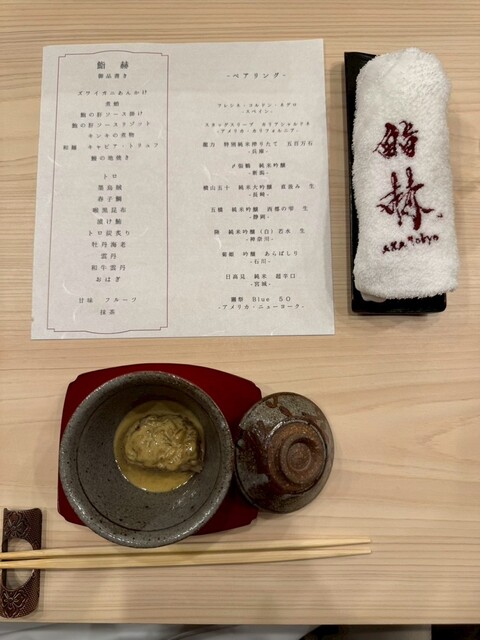 鮨 赫
御品書き
ズワイガニあんかけ
煮鮑
鮑の肝ソース掛け
鮑の肝ソースリゾット
キンキの煮物
和麺 キャビア・トリュフ
鰻の地焼き
トロ
墨烏賊
春子鯛
喉黒昆布
漬け鮪
トロ炭炙り
牡丹海老
雲丹
和牛雲丹
おはぎ
甘味 フルーツ
抹茶
-ペアリング-
フレシネ・コルドン・ネグロ
-スペイン-
スタッグスリープ カリアシャルドネ
-アメリカ・カリフォルニア-
特別純米搾りたて 五百万石
-兵庫-
〆張鶴 純米吟醸
-新潟-
横山五十 純米大吟醸 直汲み 生
-長崎-
五橋 純米吟醸 西都の雫 生
-静岡-
純米吟醸 (白) 若水 生
-神奈川-
菊姫 吟醸 あらばしり
-石川-
日高見 純米 超辛口
-宮城-
獺祭 Blue 50
-アメリカ・ニューヨーク-
鮨 赫
AKA Tokyo